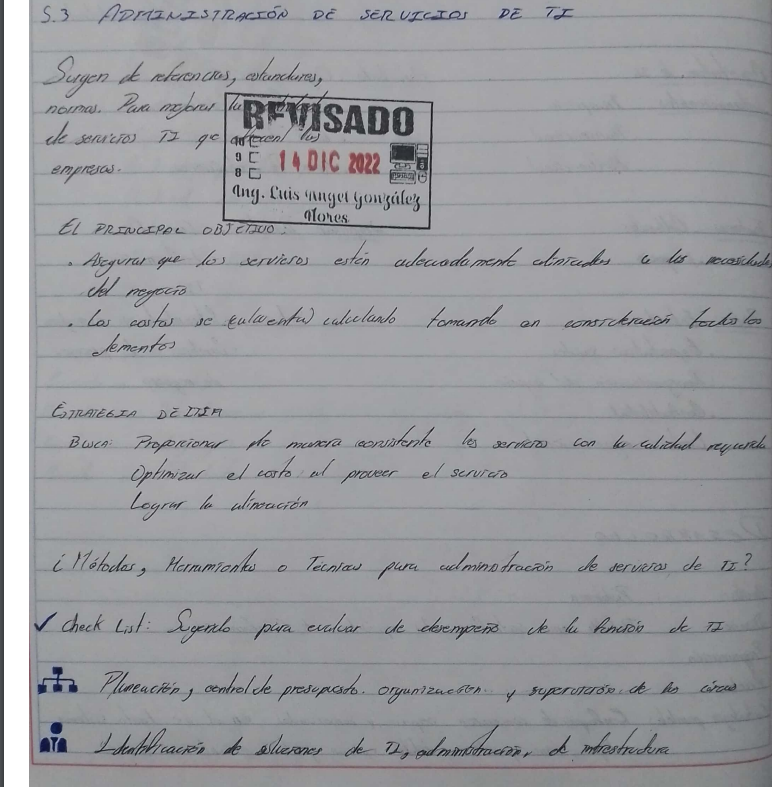 5.3 ADMINISTRACIÓN DE SERVICIOS DE TI
Surgen de referencias, estandares,
normas. Para mejorar la
de servicios TI qe ofrecen las
empresas.
REVISADO
10
9 14 DIC 2022
8
Ing. Luis Angel González
Flores
EL PRINCIPAL OBJETIVO:
. Asegurar que los servicios estén adecuadamente alineados a las necesidades
del negocio
. Los costos se calculando tomando en consideración todos los
elementos
ESTRATEGIA DE ITSM
Busca: Proporcionar de manera consistente los servicios con la calidad requerida
Optimizar el costo al proveer el servicio
Lograr la alineación
¿Métodos, Herramientas o Técnicas para administración de servicios de TI?
✓ check List: Sugerido para evaluar de desempeño de la función de TI
Planeación, control de presupuesto. organización. y supervisión de las áreas
Identificación de soluciones de TI, administración, de infrestructura